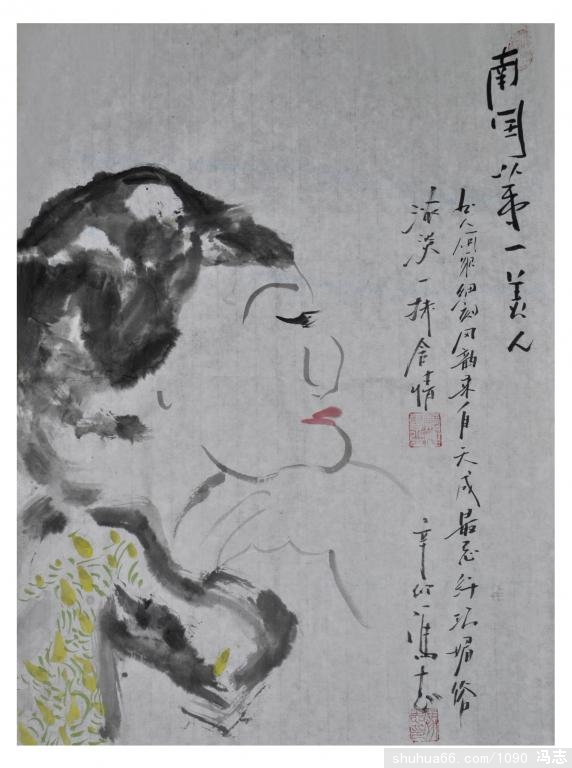 南国第一美人
女人何须细刻风韵来自天成最忌媚俗
淡一抹含情
辛卯冯志
shuhua66.com/1090 冯志